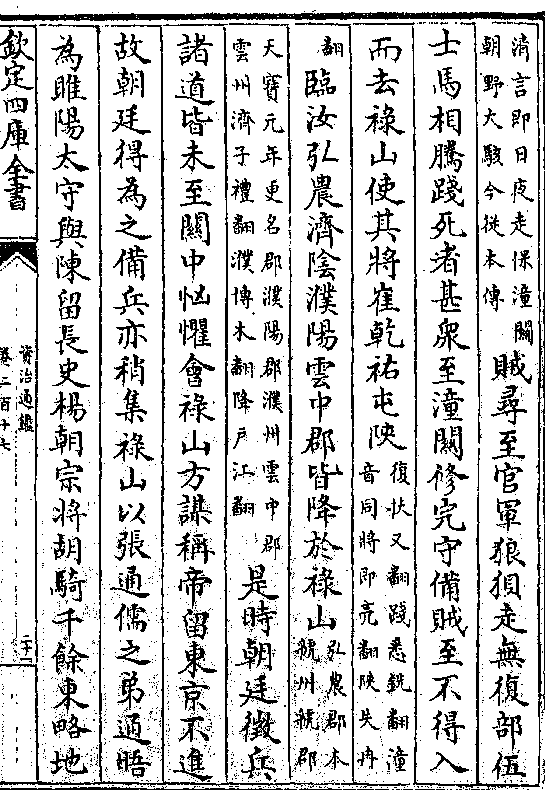 清言即日夜走保潼關
朝野大駭今從本傳
賊尋至官軍狼狽走無復部伍
士馬相騰踐死者甚衆至潼關修完守備賊至不得入
而去祿山使其將崔乾祐屯陜
復扶又翻踐悉銑翻潼
音同將即亮翻陜失冉
翻
臨汝弘農濟陰濮陽雲中郡皆降於祿山
弘農郡本
虢州虢郡
天寶元年更名郡濮陽郡濮州雲中郡
雲州濟子禮翻濮博木翻降戶江翻
是時朝廷徵兵
諸道皆未至關中忷懼會祿山方謀稱帝留東京不進
故朝廷得為之備兵亦稍集祿山以張通儒之弟通晤
為睢陽太守與陳留長史楊朝宗將胡騎千餘東略地
欽定四庫全書
資治通鑑
卷二百十七